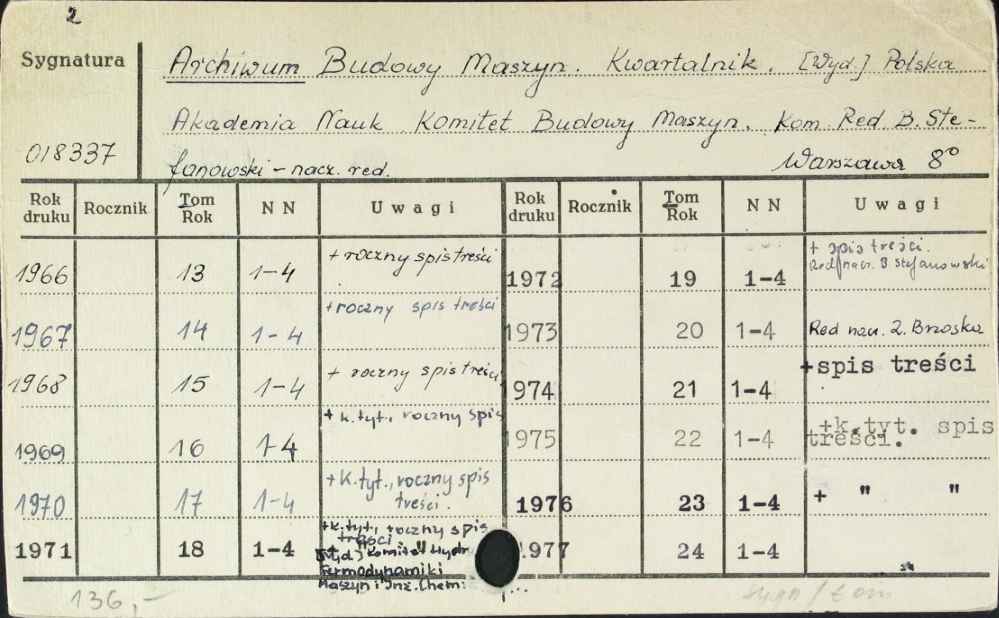 2
Sygnatura
Archiwum Budowy Maszyn. Kwartalnik. [Wyd.] Polska
Akademia Nauk. Komitet Budowy Maszyn. Kom Red B. Ste-
018337
fanowski – nacz. red. Warszawa 8°
Rok druku Rocznik Tom Rok NN Uwagi Rok druku Rocznik Tom Rok NN Uwagi
1966 13 1-4 + roczny spis treści 1972 19 1-4 + spis treści. Red. nacz. B. Stefanowski
1967 14 1-4 + roczny spis treści 1973 20 1-4 Red nacz. Brzoska
1968 15 1-4 + roczny spis treści 974 21 1-4 +spis treści
1969 16 1-4 + k. tyt., roczny spis 1975 22 1-4 +k.tyt. spis treści.
1970 17 1-4 + K. tyt., roczny spis treści. 1976 23 1-4 + " "
1971 18 1-4 +k. tyt., roczny spis treści 1977 24 1-4
Komitet
Termodynamiki
Maszyn i Inż. Chem:
136,-
Sygn/tom